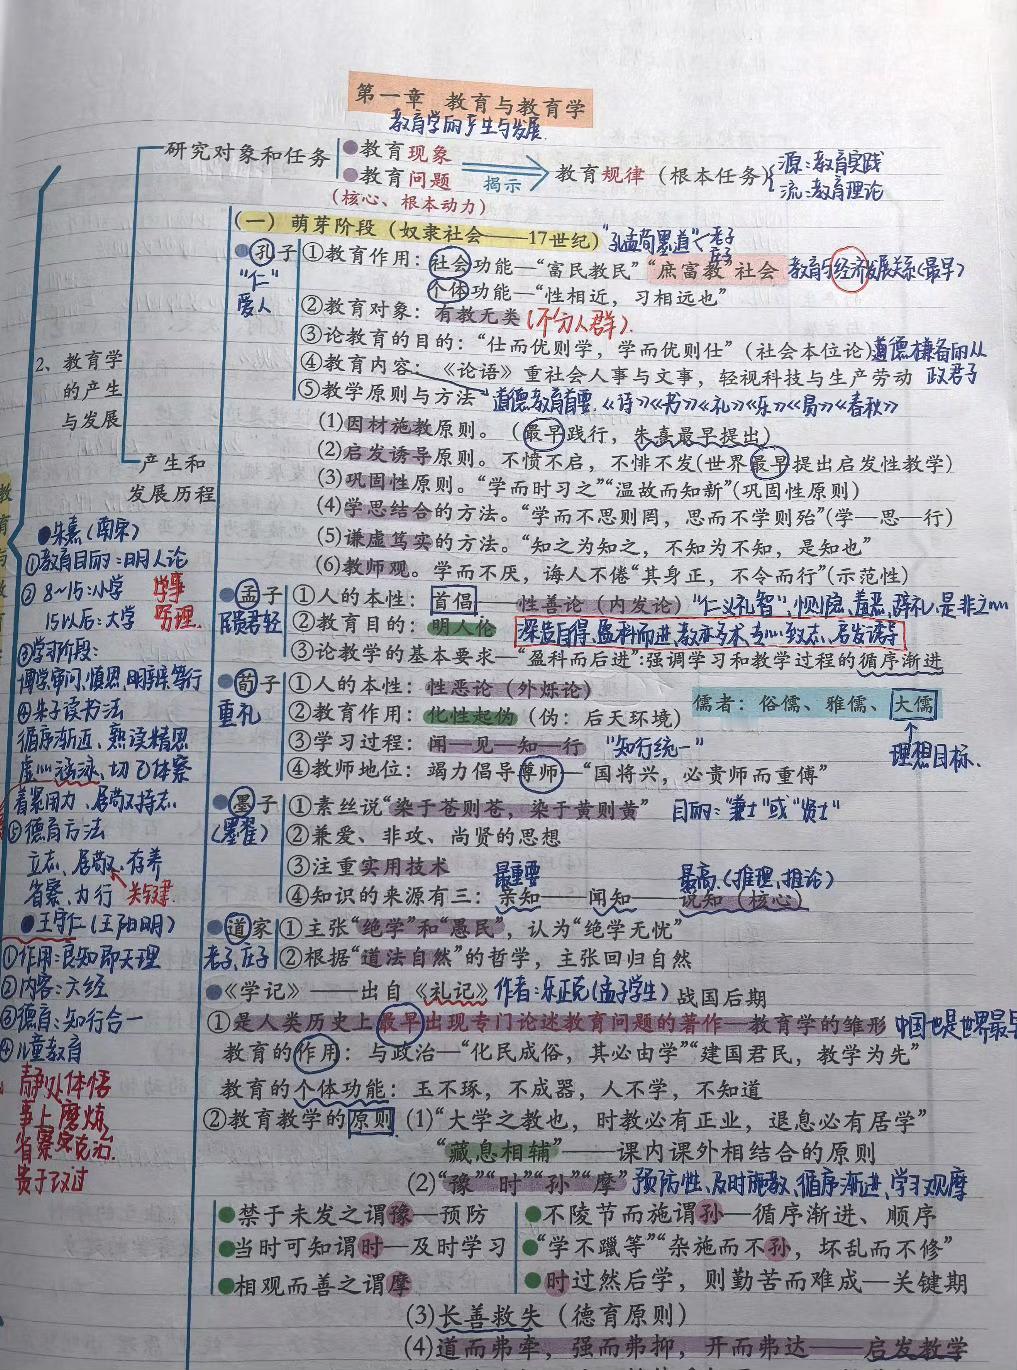 第一章 教育与教育学
教育学的产生与发展
研究对象和任务
教育现象
教育问题
(核心、根本动力)
揭示
教育规律（根本任务）
源:教育实践
流:教育理论
(一）萌芽阶段（奴隶社会——17世纪）
"孔孟荀墨道"
老子
庄子
孔子
"仁"
爱人
①教育作用：社会功能—“富民教民”“庶富教”社会 教育的经济发展关系(最早)
个体功能—“性相近，习相远也”
②教育对象：有教无类 (不分人群).
③论教育的目的：“仕而优则学，学而优则仕”（社会本位论）道德兼备的从
政君子
④教育内容：《论语》重社会人事与文事，轻视科技与生产劳动
⑤教学原则与方法 道德教育首要.《诗》《书》《礼》《乐》《易》《春秋》
(1)因材施教原则。（最早践行，朱熹最早提出）
(2)启发诱导原则。不愤不启，不悱不发(世界最早提出启发性教学)
(3)巩固性原则。“学而时习之”“温故而知新”(巩固性原则)
(4)学思结合的方法。“学而不思则罔，思而不学则殆”(学—思—行)
(5)谦虚笃实的方法。“知之为知之，不知为不知，是知也”
(6)教师观。学而不厌，诲人不倦“其身正，不令而行”(示范性)
2、教育学
的产生
与发展
产生和
发展历程
孟子
民贵君轻
①人的本性：首倡——性善论（内发论）"仁义礼智",恻隐、羞恶、辞礼、是非之心
②教育目的：明人伦 深造自得、盈科而进、教亦多术、专心致志、启发诱导
③论教学的基本要求—“盈科而后进”:强调学习和教学过程的循序渐进
荀子
重礼
①人的本性：性恶论（外烁论）
②教育作用：化性起伪（伪：后天环境）
儒者：俗儒、雅儒、大儒
理想目标.
③学习过程：闻—见—知—行 "知行统一"
④教师地位：竭力倡导尊师—“国将兴，必贵师而重傅”
墨子
(墨翟)
①素丝说“染于苍则苍，染于黄则黄” 目的:"兼士"或"贤士"
②兼爱、非攻、尚贤的思想
③注重实用技术
最重要
最高.(推理,推论)
④知识的来源有三：亲知——闻知——说知（核心）
道家
老子、庄子
①主张“绝学”和“愚民”，认为“绝学无忧”
②根据“道法自然”的哲学，主张回归自然
《学记》——出自《礼记》作者:乐正克(孟子学生) 战国后期
①是人类历史上最早出现专门论述教育问题的著作——教育学的雏形 中国也是世界最早
教育的作用：与政治—“化民成俗，其必由学”“建国君民，教学为先”
教育的个体功能：玉不琢，不成器，人不学，不知道
②教育教学的原则 (1)“大学之教也，时教必有正业，退息必有居学”
“藏息相辅”——课内课外相结合的原则
(2)“豫”“时”“孙”“摩” 预防性、及时施教、循序渐进、学习观摩
禁于未发之谓豫—预防
当时可知谓时—及时学习
相观而善之谓摩
不陵节而施谓孙—循序渐进、顺序
“学不躐等”“杂施而不孙，坏乱而不修”
时过然后学，则勤苦而难成—关键期
(3)长善救失（德育原则）
(4)道而弗牵，强而弗抑，开而弗达——启发教学
朱熹(南宋)
①教育目的:明人伦
② 8~15:小学 学事
15以后:大学 穷理.
③学习阶段:
博学审问,慎思,明辨笃行
④朱子读书法
循序渐进、熟读精思
虚心涵泳、切己体察
着紧用力、居敬持志.
⑤德育方法
立志、居敬、存养
省察、力行 关键.
王守仁(王阳明)
①作用:良知即天理
②内容:六经
③德育:知行合一
④儿童教育
静处体悟
事上磨炼,
省察克治.
贵于改过